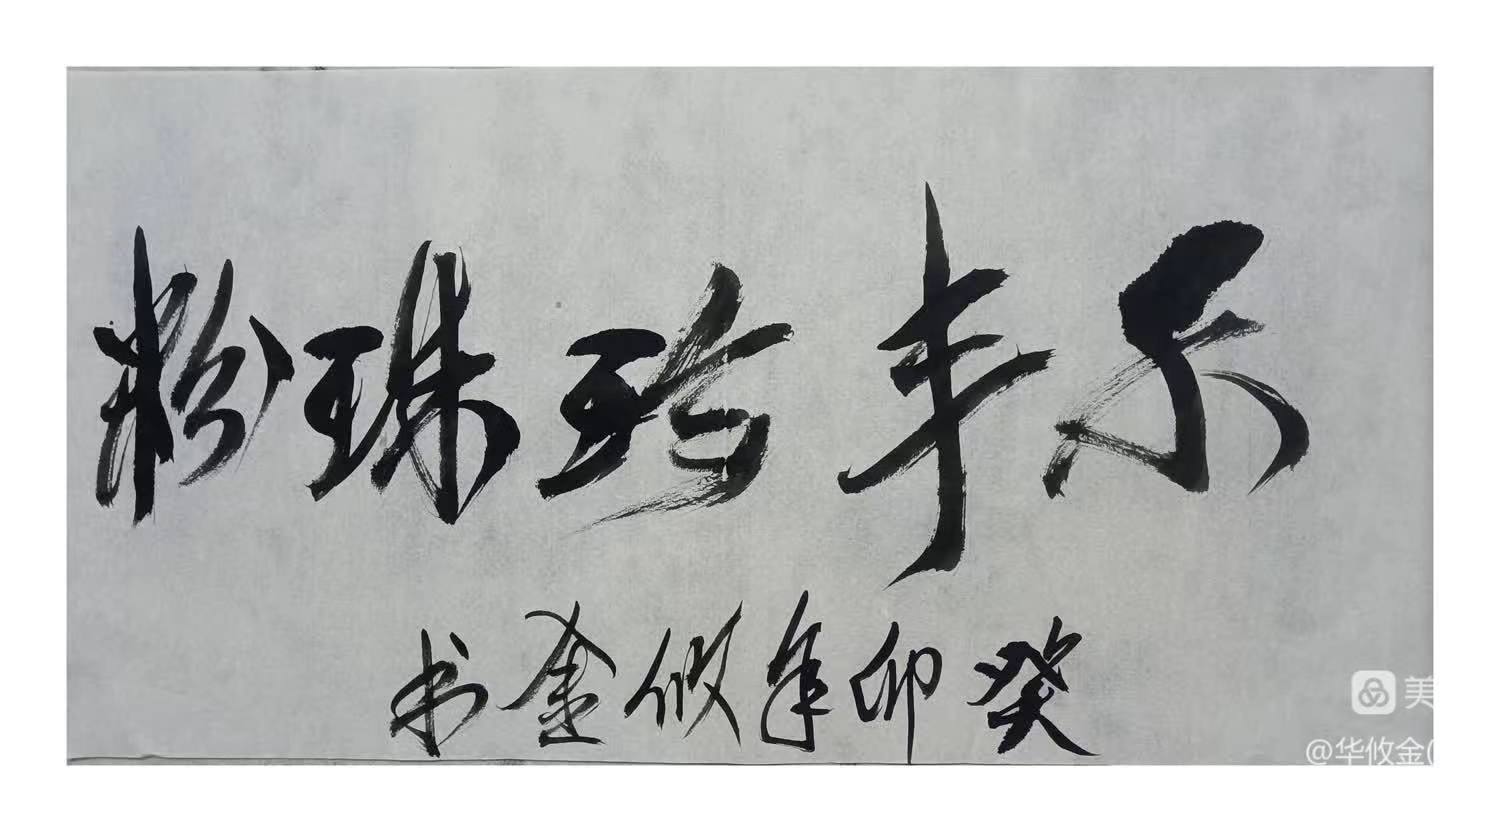 尔丰珍珠粉
癸卯年攸金书
美
@华攸金(